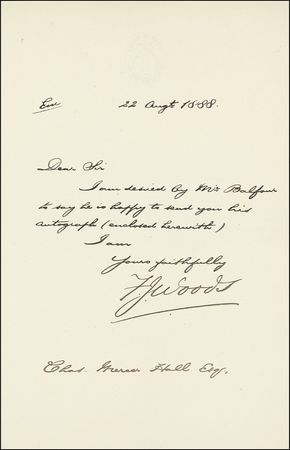 Enc 22 Augt 1888.
Dear Sir
I am desired by Mr Balfour
to say he is happy to send you his
autograph (enclosed herewith)
I am
Yours faithfully
F J Woods
Chas. Mercer Hall Esq.